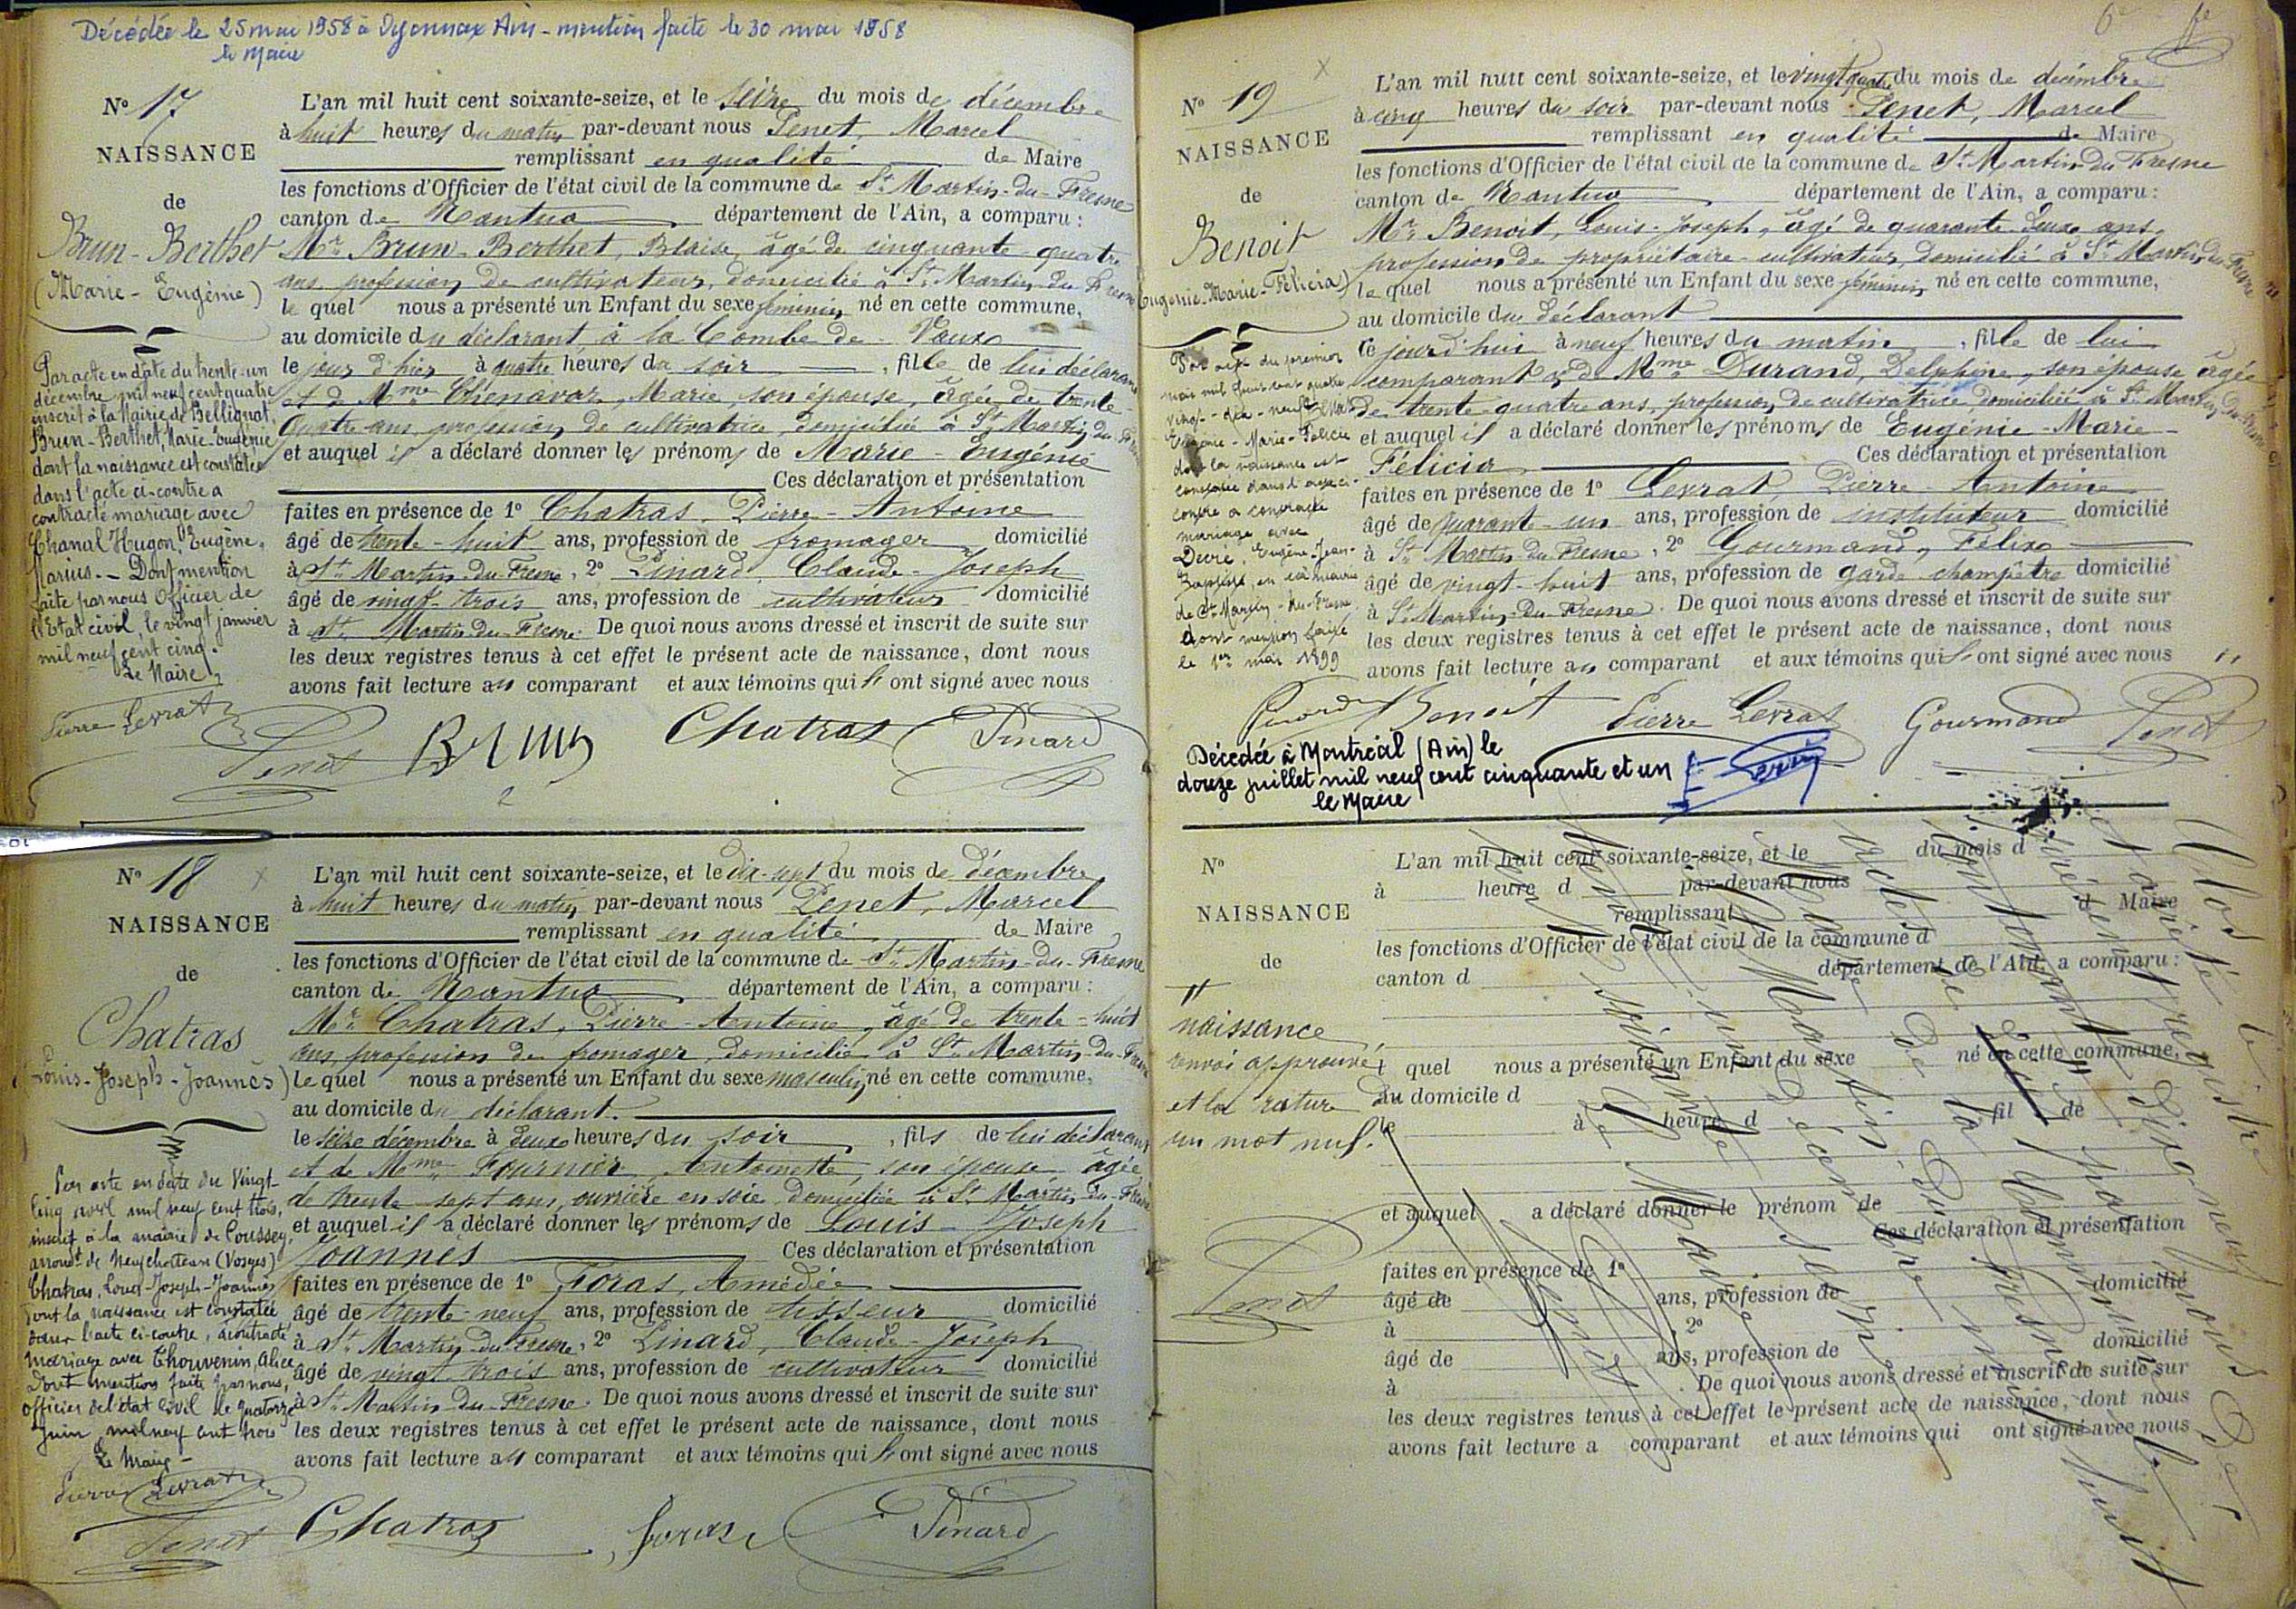 Décédée le 25 mai 1958 à Oyonnax Ain - mention faite le 30 mai 1958
le Maire
N° 17
NAISSANCE
de
Brun-Berthet
(Marie-Eugénie)
L'an mil huit cent soixante-seize, et le seize du mois de décembre
à huit heures du matin par-devant nous Penet, Marcel
remplissant en qualité de Maire
les fonctions d'Officier de l'état civil de la commune de St Martin-du-Fresne
canton de Nantua département de l'Ain, a comparu :
Mr Brun-Berthet, Blaise, âgé de cinquante-quatre
ans, profession de cultivateur, domicilié à St Martin du Fresne
le quel nous a présenté un Enfant du sexe féminin né en cette commune,
au domicile du déclarant à la Combe de Vaux
le jour d'hier à quatre heures du soir , fille de lui déclarant
et de Mme Chenavaz, Marie son épouse, âgée de trente-
quatre ans, profession de cultivatrice, domiciliée à St Martin du Fresne
et auquel il a déclaré donner les prénoms de Marie-Eugénie
Ces déclaration et présentation
faites en présence de 1° Chatras, Pierre-Antoine
âgé de trente-huit ans, profession de fromager domicilié
à St Martin du Fresne, 2° Linard, Claude-Joseph
âgé de vingt-trois ans, profession de cultivateur domicilié
à St Martin du Fresne. De quoi nous avons dressé et inscrit de suite sur
les deux registres tenus à cet effet le présent acte de naissance, dont nous
avons fait lecture au comparant et aux témoins qui ont signé avec nous
Par acte en date du trente-un
décembre mil neuf cent quatre
inscrit à la Mairie de Bellignat,
Brun-Berthet, Marie-Eugénie
dont la naissance est constatée
dans l'acte ci-contre a
contracté mariage avec
Chanal Hugon, Eugène,
Marius. - Dont mention
faite par nous Officier de
l'Etat civil, le vingt janvier
mil neuf cent cinq.
Le Maire,
Pierre Levrat
Penet Brun Chatras Linard
N° 18
NAISSANCE
de
Chatras
(Louis-Joseph-Joannès)
L'an mil huit cent soixante-seize, et le dix-sept du mois de décembre
à huit heures du matin par-devant nous Penet, Marcel
remplissant en qualité de Maire
les fonctions d'Officier de l'état civil de la commune de St Martin-du-Fresne
canton de Nantua département de l'Ain, a comparu :
Mr Chatras, Pierre-Antoine, âgé de trente-huit
ans, profession de fromager, domicilié à St Martin-du-Fresne
le quel nous a présenté un Enfant du sexe masculin né en cette commune,
au domicile du déclarant.
le seize décembre à deux heures du soir , fils de lui déclarant
et de Mme Fournier, Antoinette, son épouse âgée
de trente-sept ans, ouvrière en soie, domiciliée à St Martin-du-Fresne
et auquel il a déclaré donner les prénoms de Louis-Joseph
Joannès Ces déclaration et présentation
faites en présence de 1° Foras, Amédée
âgé de trente-neuf ans, profession de tisseur domicilié
à St Martin du Fresne, 2° Linard, Claude-Joseph
âgé de vingt trois ans, profession de cultivateur domicilié
à St Martin du Fresne. De quoi nous avons dressé et inscrit de suite sur
les deux registres tenus à cet effet le présent acte de naissance, dont nous
avons fait lecture au comparant et aux témoins qui ont signé avec nous
Par acte en date du vingt-
cinq avril mil neuf cent trois,
inscrit à la mairie de Coussey,
arrondt de Neufchateau (Vosges)
Chatras, Louis-Joseph-Joannès
dont la naissance est constatée
dans l'acte ci-contre, a contracté
mariage avec Thouvenin, Alice
Dont mention faite par nous,
officier de l'état civil le quatorze
juin, mil neuf cent trois
Le Maire
Pierre Levrat
Penet Chatras Foras Linard
N° 19
NAISSANCE
de
Benoit
(Eugénie-Marie-Félicia)
L'an mil huit cent soixante-seize, et le vingt quatre du mois de décembre
à cinq heures du soir par-devant nous Penet, Marcel
remplissant en qualité de Maire
les fonctions d'Officier de l'état civil de la commune de St Martin du Fresne
canton de Nantua département de l'Ain, a comparu :
Mr Benoit, Louis-Joseph, âgé de quarante-deux ans,
profession de propriétaire-cultivateur, domicilié à St Martin du Fresne
le quel nous a présenté un Enfant du sexe féminin né en cette commune,
au domicile du déclarant
ce jourd'hui à neuf heures du matin , fille de lui
comparant & de Mme Durand, Delphine, son épouse âgée
de trente-quatre ans, profession de cultivatrice, domiciliée à St Martin du Fresne
et auquel il a déclaré donner les prénoms de Eugénie-Marie-
Félicia Ces déclaration et présentation
faites en présence de 1° Levrat, Pierre-Antoine
âgé de quarante-un ans, profession de instituteur domicilié
à St Martin du Fresne, 2° Gourmand, Félix
âgé de vingt-huit ans, profession de garde-champêtre domicilié
à St Martin du Fresne. De quoi nous avons dressé et inscrit de suite sur
les deux registres tenus à cet effet le présent acte de naissance, dont nous
avons fait lecture au comparant et aux témoins qui ont signé avec nous
Par acte du premier
mai mil huit cent quatre
vingt-dix-neuf
Eugénie-Marie-Félicia
dont la naissance est
constatée dans l'acte ci-
contre a contracté
mariage avec
Eugène Jean-
Baptiste, en la mairie
de St Martin-du-Fresne
Dont mention faite
le 1er mai 1899
Benoit Pierre Levrat Gourmand Penet
Décédée à Montréal (Ain) le
douze juillet mil neuf cent cinquante et un
le Maire
N°
NAISSANCE
de
L'an mil huit cent soixante-seize, et le du mois d
à heure d par-devant nous
remplissant d Maire
les fonctions d'Officier de l'état civil de la commune d
canton d département de l'Ain, a comparu :
quel nous a présenté un Enfant du sexe né en cette commune,
au domicile d
le à heure d fil de
et auquel a déclaré donner le prénom de
Ces déclaration et présentation
faites en présence de 1°
âgé de ans, profession de domicilié
à , 2°
âgé de ans, profession de domicilié
à . De quoi nous avons dressé et inscrit de suite sur
les deux registres tenus à cet effet le présent acte de naissance, dont nous
avons fait lecture a comparant et aux témoins qui ont signé avec nous
naissance
renvoi approuvé
et la rature
un mot nul.
Penet
Clos le
et arrêté le présent registre
contenant dix-neuf
actes de par nous
Maire de la Commune de
St Martin du Fresne
le trente un Décembre mil huit
cent soixante seize
Le Maire
Penet